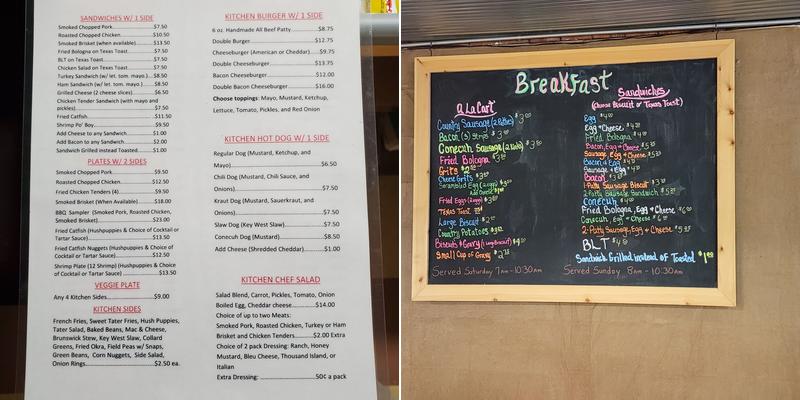 SANDWICHES W/ 1 SIDE
Smoked Chopped Pork $7.50
Roasted Chopped Chicken $10.50
Smoked Brisket (when available) $13.50
Fried Bologna on Texas Toast $7.50
BLT on Texas Toast $7.50
Chicken Salad on Texas Toast $7.50
Turkey Sandwich (w/ let. tom. mayo.) $8.50
Ham Sandwich (w/ let. tom. mayo) $8.50
Grilled Cheese (2 cheese slices) $6.50
Chicken Tender Sandwich (with mayo and
pickles) $7.50
Fried Catfish $11.50
Shrimp Po' Boy $9.50
Add Cheese to any Sandwich $1.00
Add Bacon to any Sandwich $2.00
Sandwich Grilled instead Toasted $1.00
PLATES W/ 2 SIDES
Smoked Chopped Pork $9.50
Roasted Chopped Chicken $12.50
Fried Chicken Tenders (4) $9.50
Smoked Brisket (When Available) $18.00
BBQ Sampler (Smoked Pork, Roasted Chicken,
Smoked Brisket) $23.00
Fried Catfish (Hushpuppies & Choice of Cocktail or
Tartar Sauce) $13.50
Fried Catfish Nuggets (Hushpuppies & Choice
of Cocktail or Tartar Sauce) $12.50
Shrimp Plate (12 Shrimp) (Hushpuppies & Choice
of Cocktail or Tartar Sauce) $13.50
VEGGIE PLATE
Any 4 Kitchen Sides $9.00
KITCHEN SIDES
French Fries, Sweet Tater Fries, Hush Puppies,
Tater Salad, Baked Beans, Mac & Cheese,
Brunswick Stew, Key West Slaw, Collard
Greens, Fried Okra, Field Peas w/ Snaps,
Green Beans, Corn Nuggets, Side Salad,
Onion Rings $2.50 ea.
KITCHEN BURGER W/ 1 SIDE
6 oz. Handmade All Beef Patty $8.75
Double Burger $12.75
Cheeseburger (American or Cheddar) $9.75
Double Cheeseburger $13.75
Bacon Cheeseburger $12.00
Double Bacon Cheeseburger $16.00
Choose toppings: Mayo, Mustard, Ketchup,
Lettuce, Tomato, Pickles, and Red Onion
KITCHEN HOT DOG W/ 1 SIDE
Regular Dog (Mustard, Ketchup, and
Mayo) $6.50
Chili Dog (Mustard, Chili Sauce, and
Onions) $7.50
Kraut Dog (Mustard, Sauerkraut, and
Onions) $7.50
Slaw Dog (Key West Slaw) $7.50
Conecuh Dog (Mustard) $8.50
Add Cheese (Shredded Cheddar) $1.00
KITCHEN CHEF SALAD
Salad Blend, Carrot, Pickles, Tomato, Onion
Boiled Egg, Cheddar cheese $14.00
Choice of up to two Meats:
Smoked Pork, Roasted Chicken, Turkey or Ham
Brisket and Chicken Tenders $2.00 Extra
Choice of 2 pack Dressing: Ranch, Honey
Mustard, Bleu Cheese, Thousand Island, or
Italian
Extra Dressing: 50¢ a pack
Breakfast
a La Cart
Country Sausage (2 Patties)
Bacon (3) Strips
Conecuh Sausage
Fried Bologna
Grits
Cheese Grits
Scrambled Egg (2 eggs)
Add Cheese
Fried Egg (2 eggs)
Texas Toast
Large Biscuit
Country Potatoes
Biscuits & Gravy (1 Large Biscuit)
Small Cup of Gravy
Served Saturday 7am-10:30am
Sandwiches
(Choose Biscuit or Texas Toast)
Egg
Egg + Cheese
Fried Bologna
Bacon, Egg + Cheese
Sausage, Egg + Cheese
Bacon + Egg
Sausage + Egg
Bacon
1-Patty Sausage Biscuit
2-Patty Sausage Sandwich
Conecuh
Fried Bologna, Egg + Cheese
Conecuh, Egg + Cheese
2-Patty Sausage, Egg + Cheese
BLT
Sandwich Grilled instead of Toasted
Served Sunday 8am-10:30am